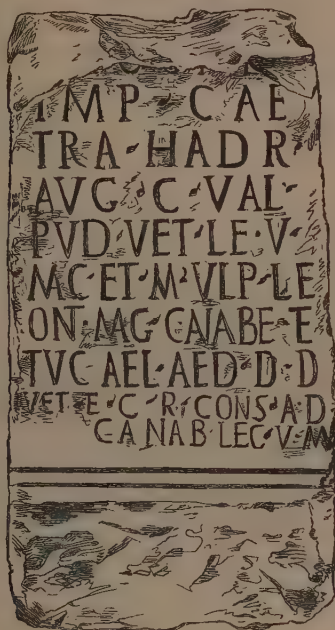 IMP · CAE
TRA · HADR
AVG · C · VAL ·
PVD · VET · LE · V ·
MC · ET · M · VLP · LE
ON · MAG · CANABE · E
TVC · AEL · AED · D · D
VET · E · C · R · CONS · A D
CANAB LEC · V · M